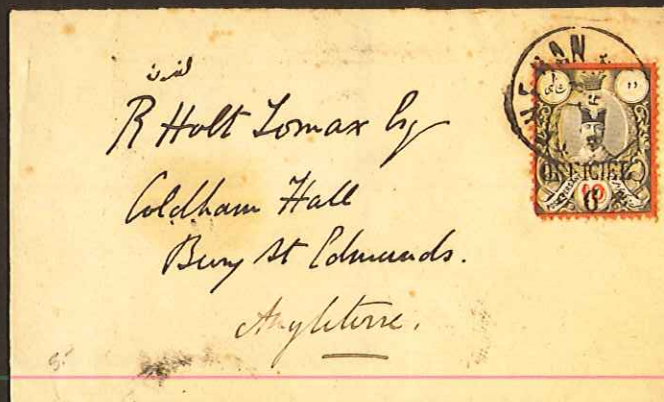 لندن
R Holt Lomax Esq
Coldham Hall
Bury St Edmunds.
Angleterre.
TEHERAN
OFFICIEL
6